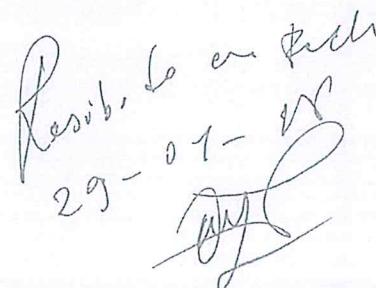 Resibido en fech
29-01-18